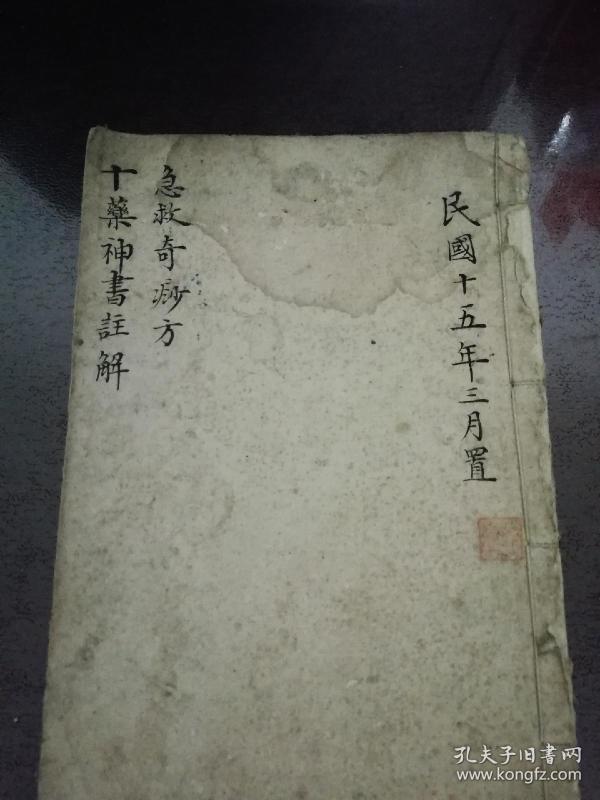 民國十五年三月置
急救奇痧方
十藥神書註解
孔夫子旧書网
www.kongfz.com